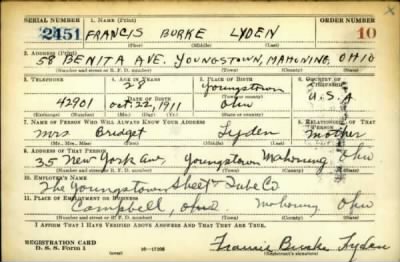 SERIAL NUMBER 1. NAME (Print) ORDER NUMBER
2451 FRANCIS BURKE LYDEN 10
(First) (Middle) (Last)
2. ADDRESS (Print)
58 BENITA AVE. YOUNGSTOWN, MAHONING, OHIO
(Number and street or R. F. D. number) (Town) (County) (State)
3. TELEPHONE 4. AGE IN YEARS 5. PLACE OF BIRTH 6. COUNTRY OF CITIZENSHIP
28 Youngstown
DATE OF BIRTH (Town or county)
42901 Oct. 22, 1911 Ohio U.S.A
(Exchange) (Number) (Mo.) (Day) (Yr.) (State or country)
7. NAME OF PERSON WHO WILL ALWAYS KNOW YOUR ADDRESS 8. RELATIONSHIP OF THAT PERSON
Mrs Bridget Lyden mother
(Mr., Mrs., Miss) (First) (Middle) (Last)
9. ADDRESS OF THAT PERSON
35 New York Ave, Youngstown Mahoning Ohio
(Number and street or R. F. D. number) (Town) (County) (State)
10. EMPLOYER'S NAME
The Youngstown Sheet & Tube Co
11. PLACE OF EMPLOYMENT OR BUSINESS
Campbell, Ohio Mahoning Ohio
(Number and street or R. F. D. number) (Town) (County) (State)
I AFFIRM THAT I HAVE VERIFIED ABOVE ANSWERS AND THAT THEY ARE TRUE.
REGISTRATION CARD
D. S. S. Form 1 Francis Burke Lyden
(over) (Registrant's signature)